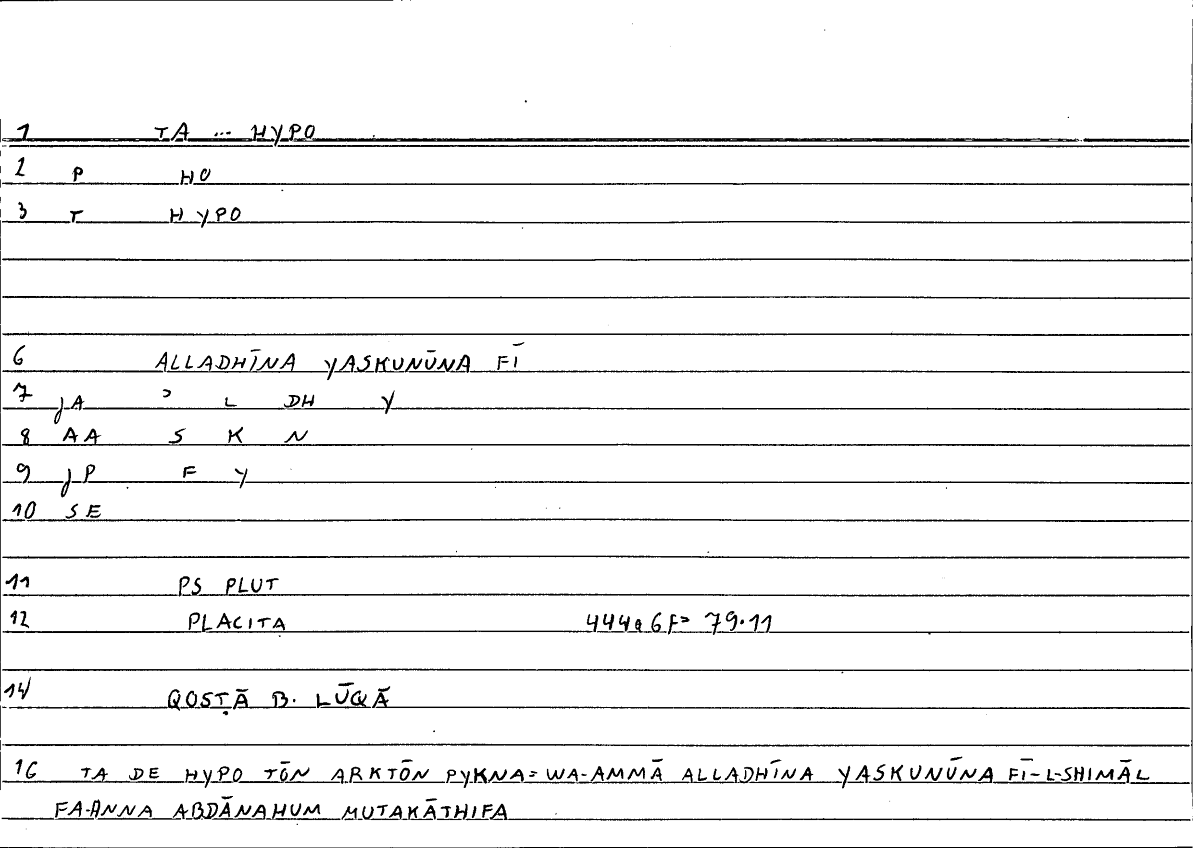 1 TA ... HYPO
2 P HO
3 T HYPO
6 ALLADHĪNA YASKUNŪNA FĪ
7 JA ʾ L DH Y
8 AA S K N
9 JP F Y
10 SE
11 PS PLUT
12 PLACITA 444a6F= 79.11
14 QOSṬĀ B. LŪQĀ
16 TA DE HYPO TŌN ARKTŌN PYKNA = WA-AMMĀ ALLADHĪNA YASKUNŪNA FĪ-L-SHIMĀL
FA-ANNA ABDĀNAHUM MUTAKĀTHIFA